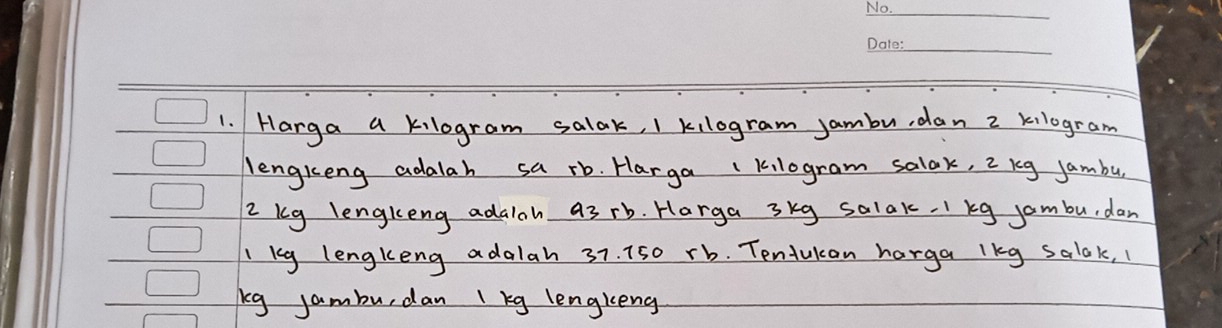 No.
Date:
1. Harga 4 kilogram salak, 1 kilogram jambu, dan 2 kilogram
lengkeng adalah 54 rb. Harga 1 kilogram salak, 2 kg jambu,
2 kg lengkeng adalah 43 rb. Harga 3 kg salak, 1 kg jambu, dan
1 kg lengkeng adalah 37.750 rb. Tentukan harga 1 kg salak, 1
kg jambu, dan 1 kg lengkeng